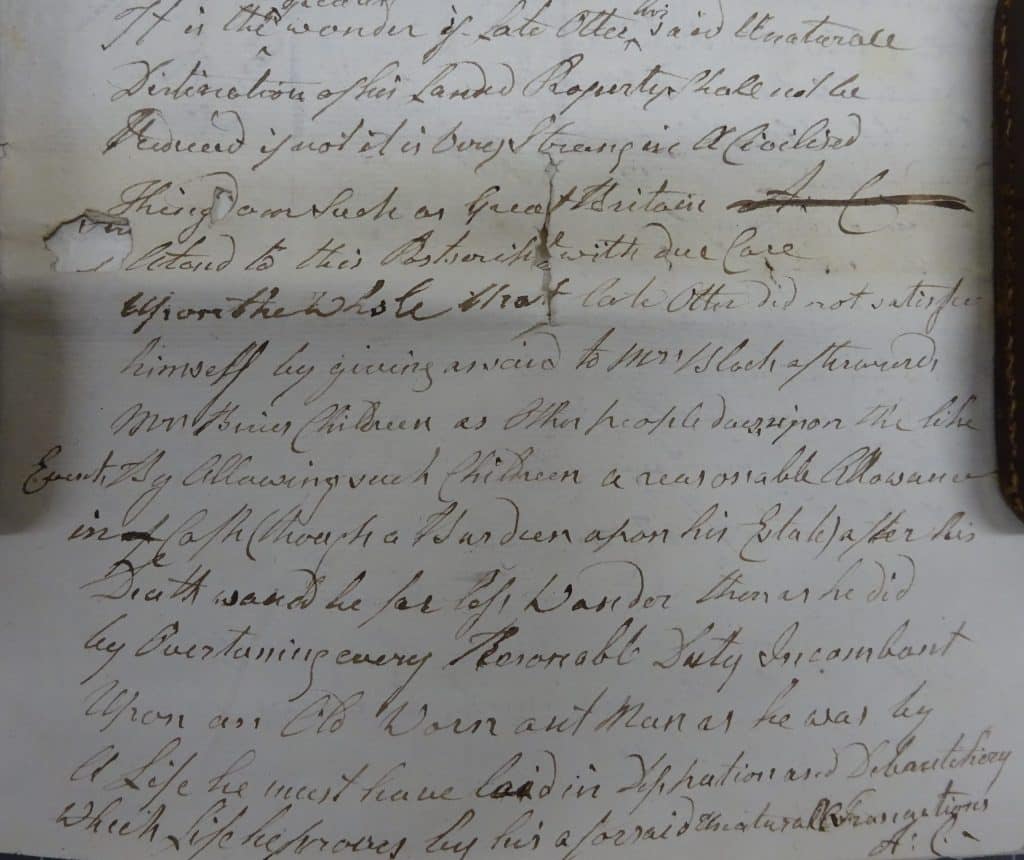 It is the greater wonder if Late Otter his said Unaturall
Distination of his Landed Property Shall not be
Reduced if not it is very Strang in A Civilised
Kingdom Such as Great Britain A: C:
Atend to this Postscript with due Care
Upon the Whole that late Otter did not satisfie
himself by giving as said to Mrs Black afterwards
Mrs Bines Children as Other people does upon the like
Events By Allowing such Children a reasonable Allowance
in Cash (though a Burdeen upon his Estate) after his
Death would be far less Wonder then as he did
by Overturning every Resonable Duty Incombant
Upon an Old Worn out Man as he was by
A Life he must have laid in Disipation and Debautchery
Which Life he proves by his aforsaid Unaturall Transactions
A: C: